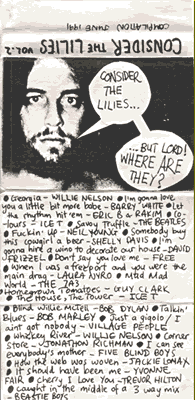 COMPILATION JUNE 1991
CONSIDER THE LILIES VOL.2
CONSIDER
THE
LILIES...
...BUT LORD!
WHERE ARE
THEY?
● Georgia - WILLIE NELSON ● I'm gonna love
you a little bit more babe - BARRY WHITE ● Let
the rhythm hit 'em - ERIC B & RAKIM ● Co-
lours - ICE T ● Savoy Truffle - THE BEATLES
● Fuckin' up - NEIL YOUNG ● Somebody buy
this cowgirl a beer - SHELLY DAVIS ● I'm
gonna hire a wino to decorate our house - DAVID
FRIZZEL ● Don't say you love me - FREE
● When I was a freeport and you were the
main drag - LAURA NYRO ● Mad Mad
World - THE JAS
Homegrown Tomatoes - GUY CLARK
● The House, The Tower - ICE T
● Blind Willie McTell - BOB DYLAN ● Talkin'
Blues - BOB MARLEY ● Just a gigolo / I
ain't got nobody - VILLAGE PEOPLE
● Whiskey River - WILLIE NELSON ● Corner
Store - JONATHON RICHMAN ● I can see
everybody's mother - FIVE BLIND BOYS
● How the web was woven - JACKIE LOMAX
● It should have been me - YVONNE
FAIR ● Cherry I Love You - TREVOR HILTON
● Caught in the middle of a 3 way mix
- BEASTIE BOYS